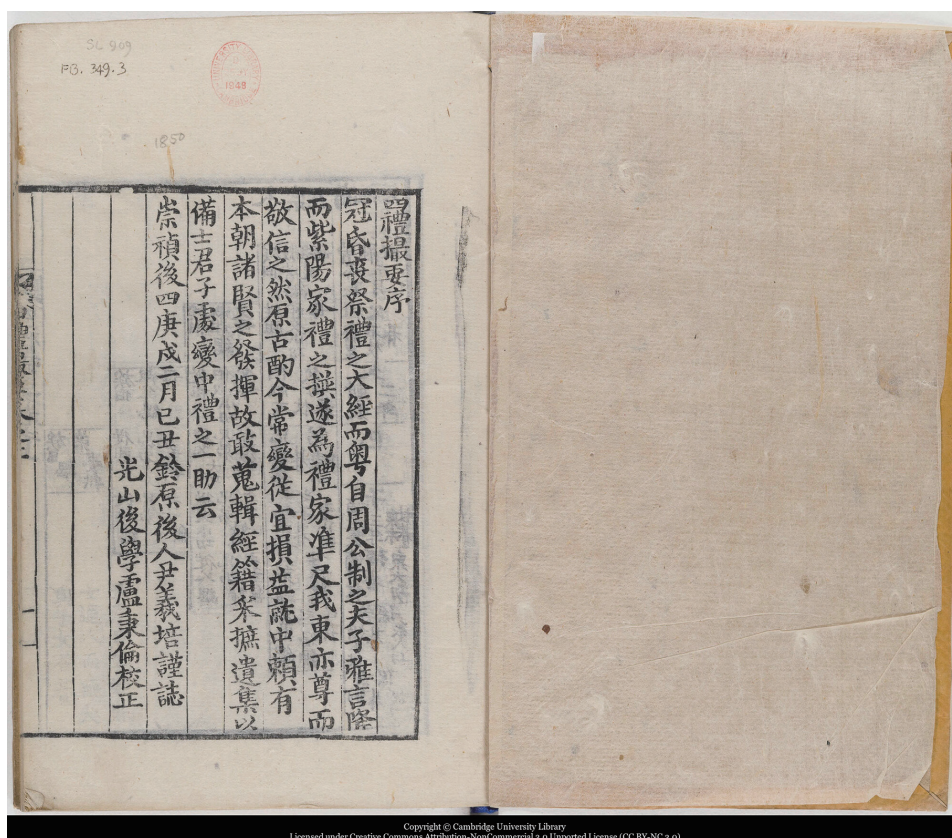 四禮撮要序
冠昏喪祭禮之大經而粤自周公制之夫子雅言降
而紫陽家禮之撰遂為禮家準尺我東亦尊而
敬信之然原古酌今常變從宜損益就中頼有
本朝諸賢之發揮故敢蒐輯經籍采摭遺集以
備士君子處變中禮之一助云
崇禎後四庚戌二月己丑鈴原後人尹羲培謹誌
光山後學盧秉倫校正
SL 909
FB. 349.3
1948
1850
Copyright © Cambridge University Library
Licensed under Creative Commons Attribution-NonCommercial 3.0 Unported License (CC BY-NC 3.0)